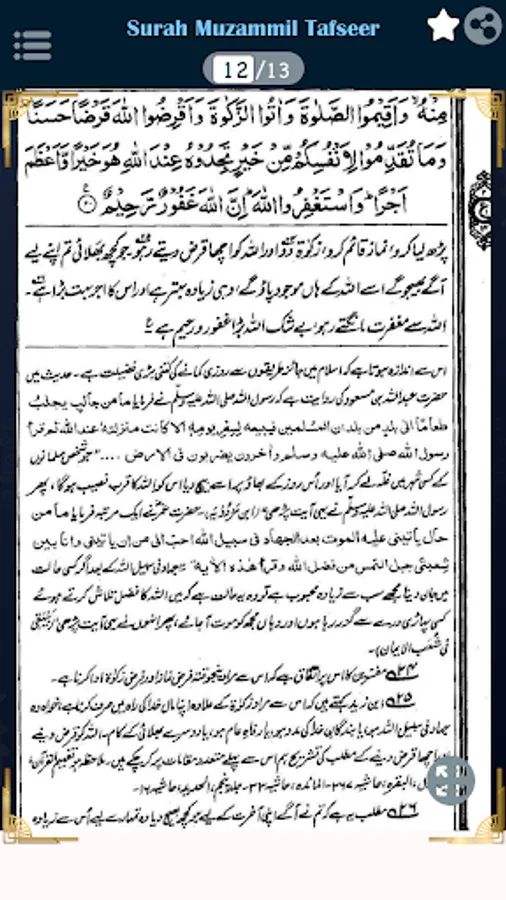 Surah Muzammil Tafseer
12/13
مِنْهُ ۙ وَاَقِيْمُوا الصَّلٰوةَ وَاٰتُوا الزَّكٰوةَ وَاَقْرِضُوا اللّٰهَ قَرْضًا حَسَنًا ؕ
وَمَا تُقَدِّمُوْا لِاَنْفُسِكُمْ مِّنْ خَيْرٍ تَجِدُوْهُ عِنْدَ اللّٰهِ هُوَ خَيْرًا وَّاَعْظَمَ
اَجْرًا ؕ وَاسْتَغْفِرُوا اللّٰهَ ؕ اِنَّ اللّٰهَ غَفُوْرٌ رَّحِيْمٌ ۲۰
پڑھ لیا کرو، نماز قائم کرو، زکوٰۃ دو اور اللہ کو اچھا قرض دیتے رہو۔ جو کچھ بھلائی تم اپنے لیے
آگے بھیجو گے اسے اللہ کے ہاں موجود پاؤ گے، وہی زیادہ بہتر ہے اور اس کا اجر بہت بڑا ہے۔
اللہ سے مغفرت مانگتے رہو، بے شک اللہ بڑا غفور و رحیم ہے
اس سے اندازہ ہوتا ہے کہ اسلام میں جائز طریقوں سے روزی کمانے کی کتنی بڑی فضیلت ہے۔ حدیث میں
حضرت عبداللہ بن مسعود کی روایت ہے کہ رسول اللہ صلی اللہ علیہ وسلم نے فرمایا ما من جالب يجلب
طعامًا الى بلد من بلدان المسلمين فيبيعه لسعر يومه الا كانت منزلته عند الله ثم قرأ
رسول الله صلى الله عليه وسلم وآخرون يضربون فى الارض .... "جو شخص مسلمانوں
کے کسی شہر میں غلہ لے کر آیا اور اُس روز کے بھاؤ پر اسے بیچ دیا اس کو اللہ کا قرب نصیب ہوگا، پھر
رسول اللہ صلی اللہ علیہ وسلم نے یہی آیت پڑھی" (ابن مردویہ)۔ حضرت عمر نے ایک مرتبہ فرمایا ما من
حال ياتينى عليه الموت بعد الجهاد فى سبيل الله احب الى من ان ياتينى وانا بين
شعبتى جبل التمس من فضل الله وقرأ هذه الاٰية۔ "جہاد فی سبیل اللہ کے بعد اگر کسی حالت
میں جان دینا مجھے سب سے زیادہ محبوب ہے تو وہ یہ حالت ہے کہ میں اللہ کا فضل تلاش کرتے ہوئے
کسی پہاڑی درے سے گزر رہا ہوں اور وہاں مجھ کو موت آ جائے، پھر انہوں نے یہی آیت پڑھی" (بیہقی
فی شعب الایمان)۔
۲۴ مفسرین کا اس پر اتفاق ہے کہ اس سے مراد پنجوقتہ فرض نماز اور فرض زکوٰۃ ادا کرنا ہے۔
۲۵ ابن زید کہتے ہیں کہ اس سے مراد زکوٰۃ کے علاوہ اپنا مال خدا کی راہ میں صرف کرنا ہے، خواہ وہ
جہاد فی سبیل اللہ ہو، یا بندگانِ خدا کی مدد ہو، یا رفاہِ عام ہو، یا دوسرے بھلائی کے کام۔ اللہ کو قرض دینے
اور اچھا قرض دینے کے مطلب کی تشریح ہم اس سے پہلے متعدد مقامات پر کر چکے ہیں۔ ملاحظہ ہو تفہیم القرآن،
البقرہ، حاشیہ ۲۶۷۔ المائدہ، حاشیہ ۳۳۔ جلد پنجم، الحدید، حاشیہ ۱۶۔
۲۶ مطلب یہ ہے کہ تم نے آگے اپنی آخرت کے لیے جو کچھ بھیج دیا وہ تمہارے لیے اُس سے زیادہ